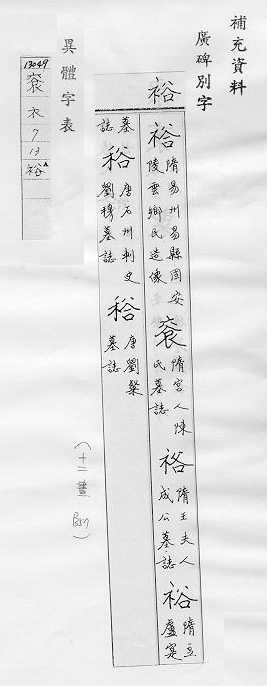 補充資料
廣碑別字
裕
裕 隋易州易縣固安陵雲鄉民造像
袬 隋宮人陳氏墓誌
裕 隋王夫人成公墓誌
裕 隋主盧寔
墓誌
䄾 唐石州刺史劉穆墓誌
䄾 唐劉粲墓誌
(十二畫 B57)
異體字表
13049
衣
7
13
裕